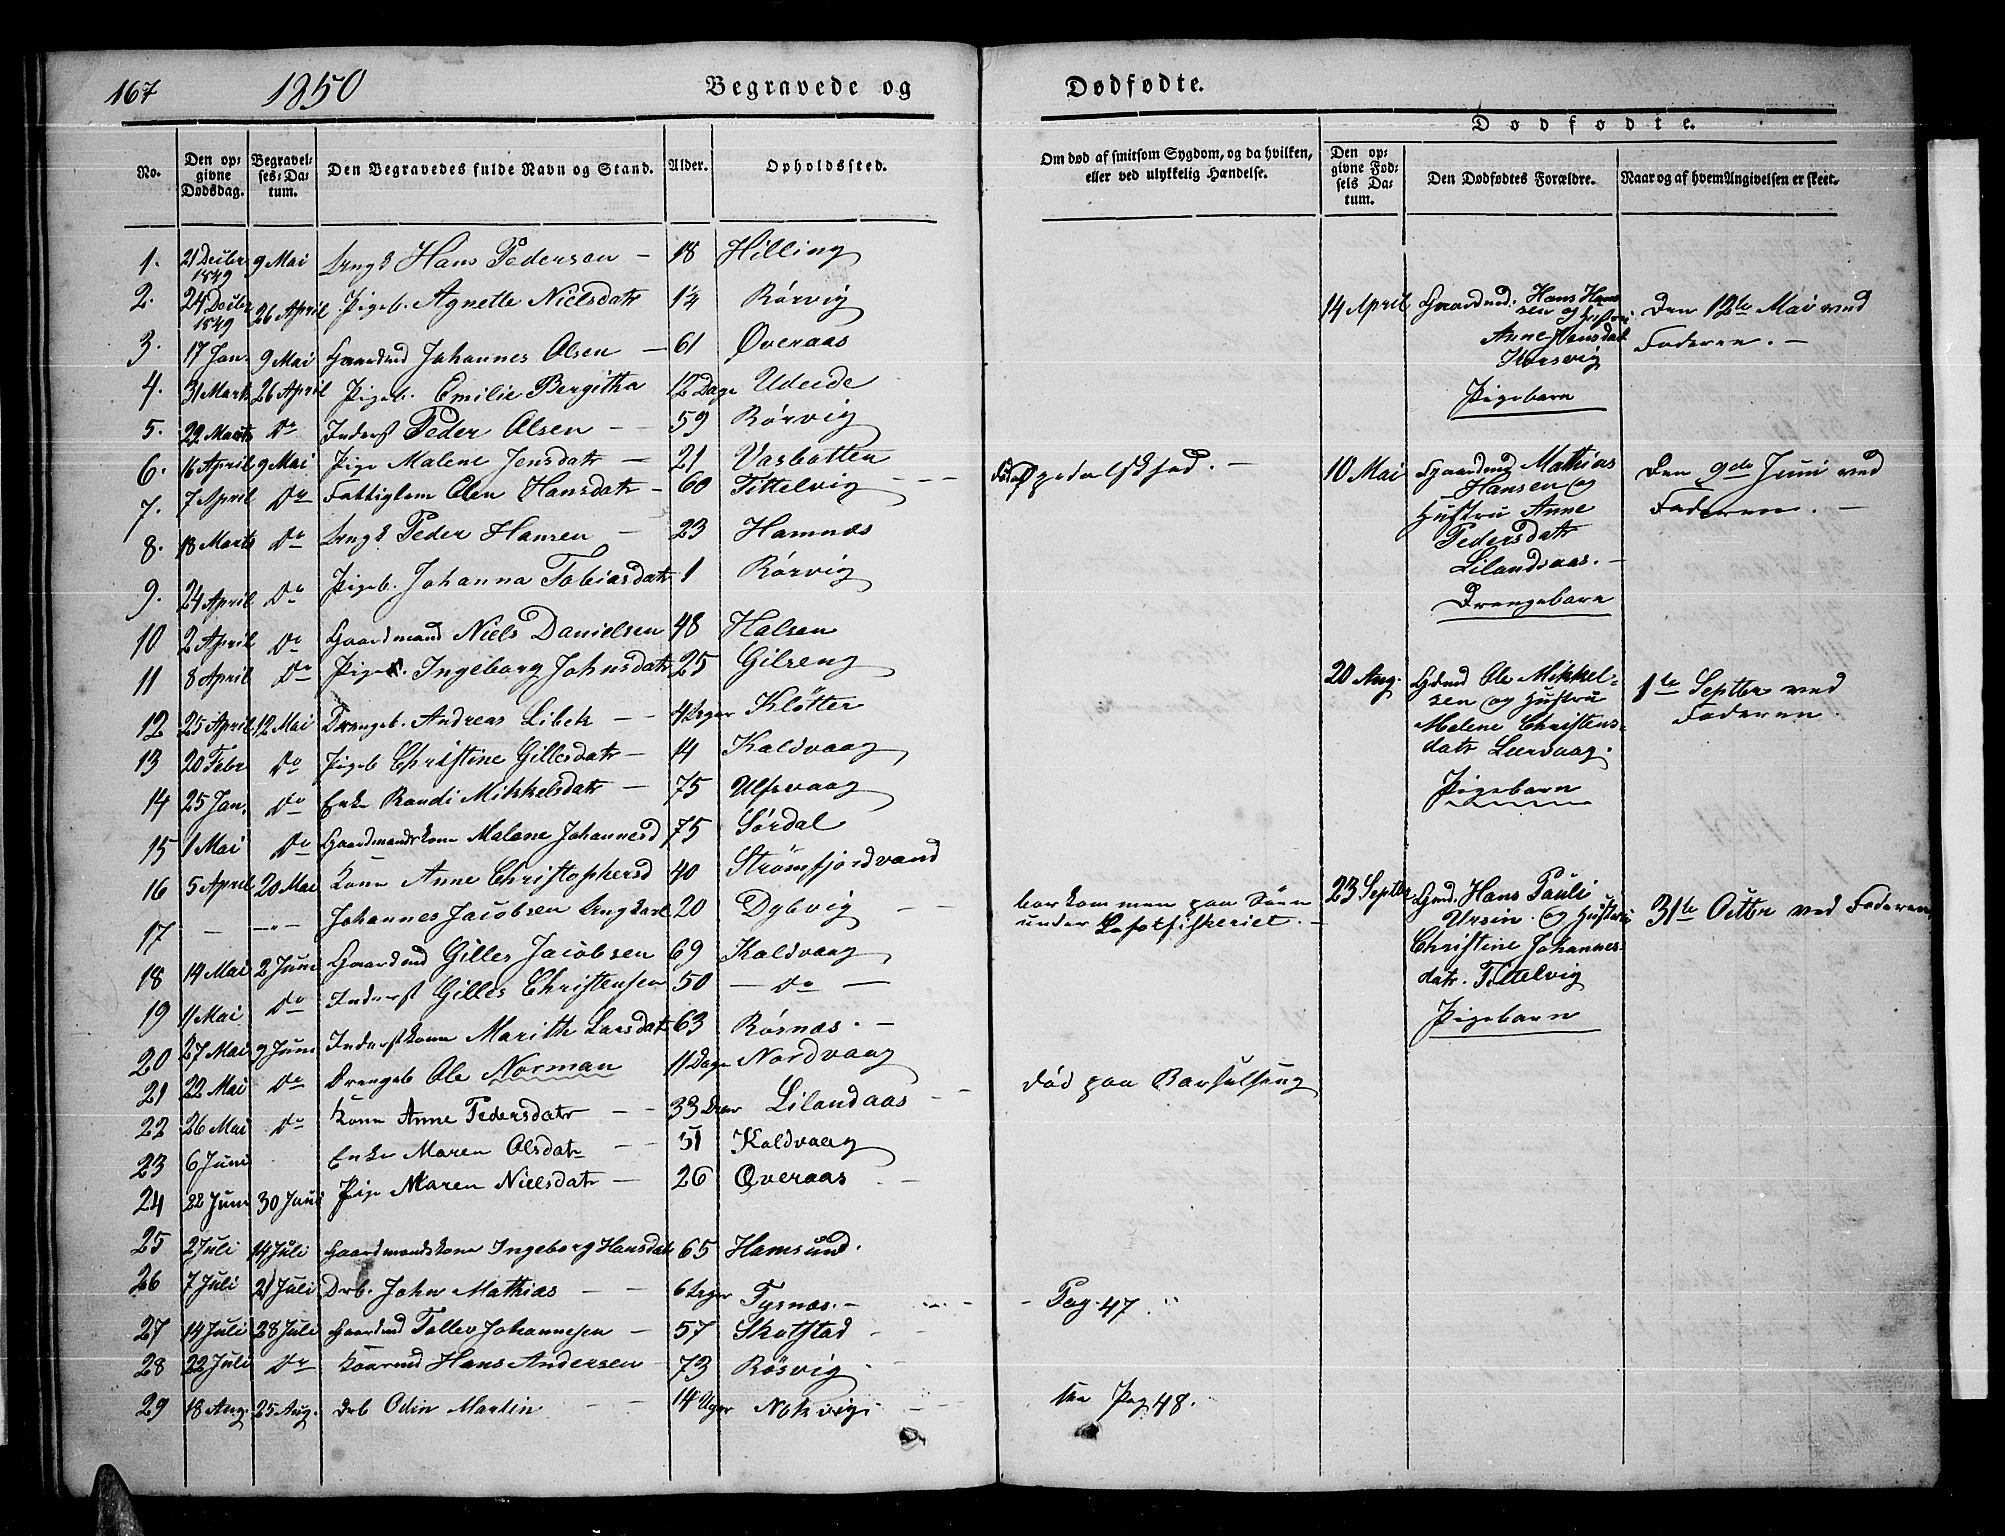 167 1850 Begravede og Dødfødte.
Dødfødte.
No. Den opgivne Dødsdag. Begravelses-Datum. Den Begravedes fulde Navn og Stand. Alder. Opholdssted. Om død af smitsom Sygdom, og da hvilken, eller ved ulykkelig Hændelse. Den opgivne Fødsels Datum. Den Dødfødtes Forældre. Naar og af hvem Angivelsen er skeet.
1. 21 Decbr 1849 9 Mai Ungk Hans Pedersen – 18 Hilling
2. 24 Decbr 1849 26 April Pigeb. Agnette Nielsdatr 1¼ Rørvig
3. 17 Jan. 9 Mai Gaardmd Johannes Olsen – 61 Øveraas
4. 31 Marts 26 April Pigeb. Emilie Bergitha 12 Dage Udeide
5. 22 Marts Do Inderst Peder Olsen – – 59 Rørvig
6. 16 April 9 Mai Pige Malene Jensdatr – 21 Vasbotten
7. 7 April Do Fattiglem Olen Hansdatr – 60 Tittelvig – – Spedalskhed. –
8. 18 Marts Do Ungk Peder Hansen – 23 Hamnæs
9. 24 April Do Pigeb. Johanna Tobiasdatr 1 Rørvig
10 2 April Do Gaardmand Niels Danielsen 48 Halsen
11 8 April Do Pige Ingeborg Johnsdatr 25 Gilseng
12 25 April 12 Mai Drengeb. Andreas Libek – – 4 Uger Kløtter
13 20 Febr Do Pigeb Christine Gillesdatr – 14 Kaldvaag
14 25 Jan. Do Enke Randi Mikkelsdatr – 75 Ulfsvaag
15 1 Mai Do Gaardmandskone Malene Johannesd 75 Sørdal
16 5 April 20 Mai Kone Anne Christophersd 40 Strømfjordvand
17 – –"– Johannes Jacobsen Ungkarl 20 Dybvig – – bortkommen paa Søen
under Lofotfiskeriet. –
18 14 Mai 2 Juni Gaardmd Gilles Jacobsen 69 Kaldvaag
19 11 Mai Do Inderst Gilles Christensen 50 – Do –
20 27 Mai 9 Juni Inderstkone Marith Larsdatr 63 Røsnæs. –
21 22 Mai Do Drengeb Ole Norman 11 Dage Nordvaag
22 26 Mai Do Kone Anne Pedersdatr – – 33 Lilandaas – – død paa Barselseng
23 6 Juni Enke Maren Olsdatr – – 51 Kaldvaag
24 22 Juni 30 Juni Pige Maren Nielsdatr – 26 Øveraas –
25 2 Juli 14 Juli Gaardmandskone Ingeborg Hansdatr 65 Hamsund.
26 7 Juli 21 Juli Drb. John Mathias – – 6 Uger Tysnæs. – – Pag. 47. "
27 14 Juli 28 Juli Gaardmd Tollev Johannesen – 57 Skotstad –
28 22 Juli Do Hans Andersen – 73 Røsvig
29 18 Aug. 25 Aug. drb Odin Martin – – 14 Uger Nokvig – – Pag 48.
14 April Gaardmd. Hans Hansen og Hustru
Anne Hansdatr
Korsvig
Pigebarn
Den 12te Mai ved
Faderen. –
10 Mai Gaardmd Mathias
Hansen og
Hustru Anne
Pedersdatr
Lilandsaas. –
Drengebarn
Den 9de Juni ved
Faderen. –
20 Aug. Gdmd Ole Mikkelsen
og Hustru
Malene Christensdatr
Leervaag.
Pigebarn
1te Septbr ved
Faderen.
23 Septbr Gmd. Hans Pauli
Ursin og Hustru
Christine Johannesdatr.
Tittelvig
Pigebarn
31te Octbr ved Faderen